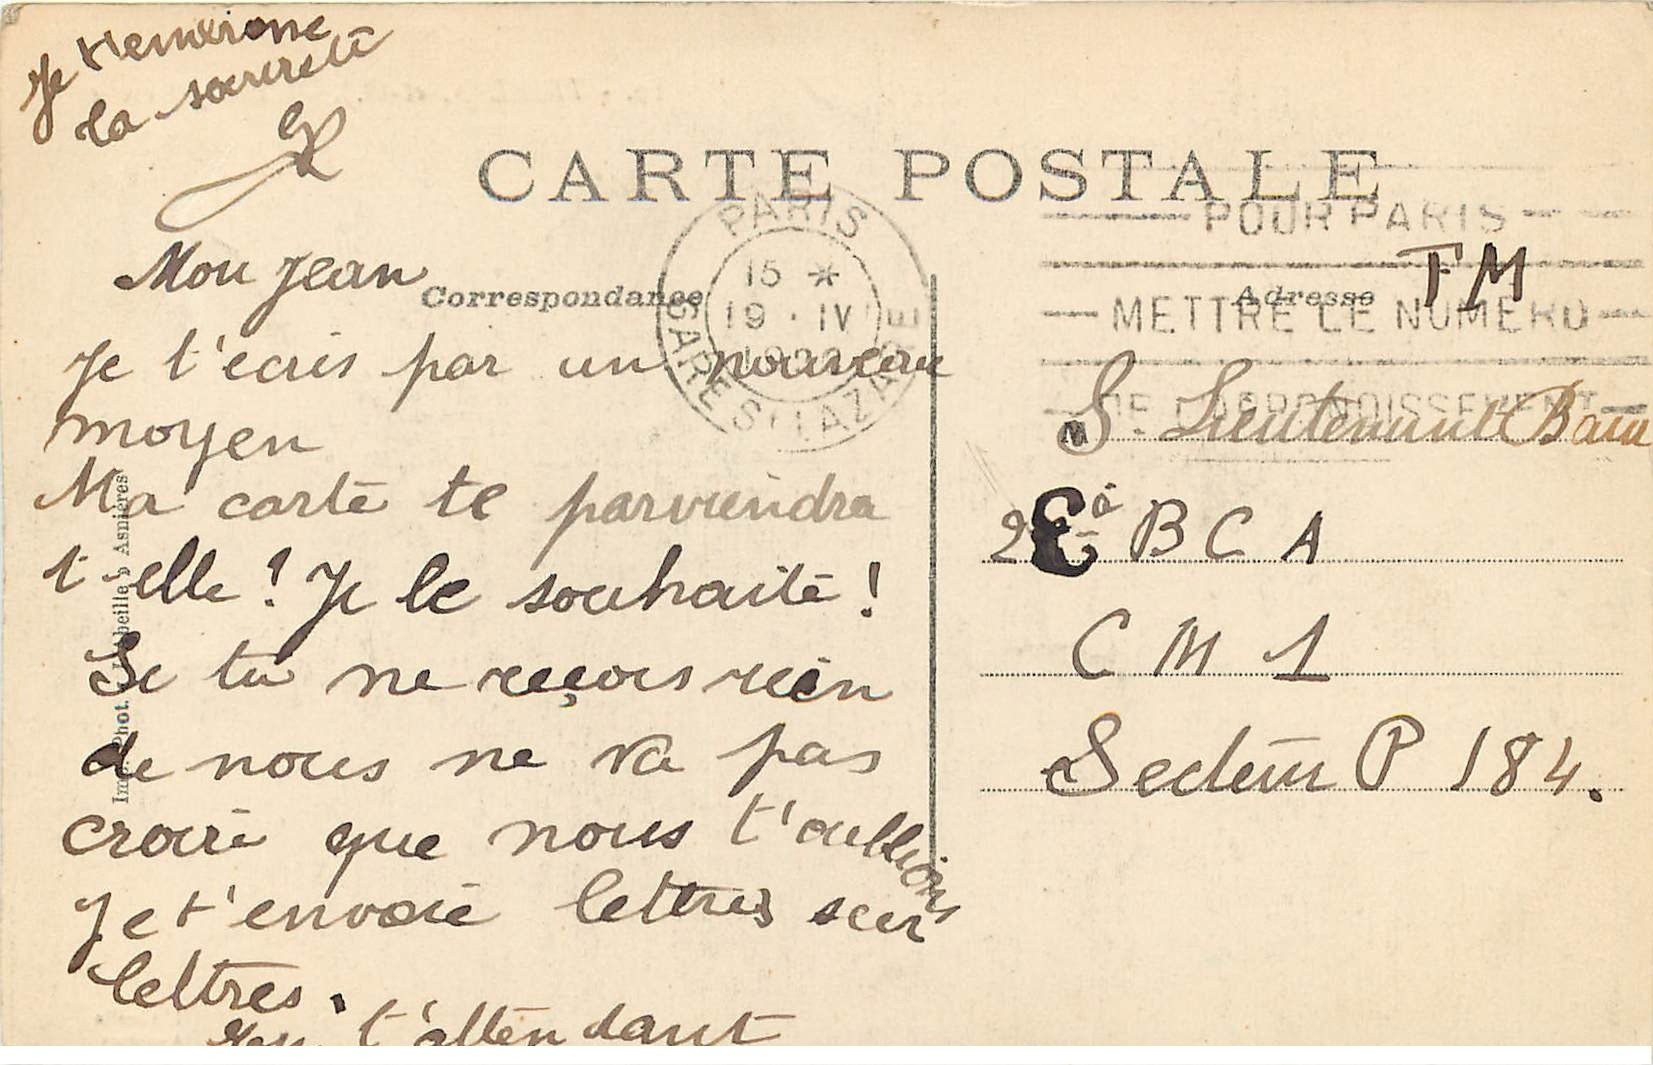 Je t'envoie
la
CARTE POSTALE
PARIS
15 *
19 · IV
1922
GARE ST LAZARE
POUR PARIS
METTRE LE NUMERO
DE L'ARRONDISSEMENT
Correspondance
Adresse
FM
Mon Jean
Je t'ecris par un nouveau
moyen
Ma carte te parviendra
t-elle ! Je le souhaite !
Si tu ne reçois rien
de nous ne va pas
croire que nous t'oublions
Je t'envoie lettres sur
lettres.
En t'attendant
S. Lieutenant
2E à B C A
C M 1
Secteur P 184.
Imp. Phot. L'Abeille, Asnières